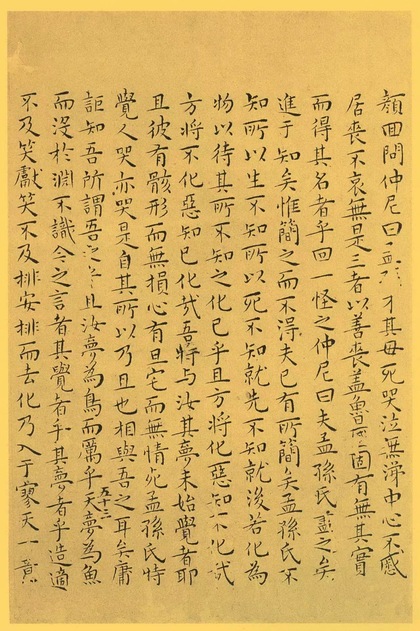 顏回問仲尼曰孟才其母死哭泣無涕中心不慼
居喪不哀無是三者以善喪蓋魯國固有無其實
而得其名者乎回一怪之仲尼曰夫孟孫氏盡之矣
進于知矣惟簡之而不得夫已有所簡矣孟孫氏不
知所以生不知所以死不知就先不知就後若化為
物以待其所不知之化已乎且方將化惡知不化哉
方將不化惡知已化哉吾特与汝其夢未始覺者耶
且彼有骸形而無損心有旦宅而無情死孟孫氏特
覺人哭亦哭是自其所以乃且也相與吾之耳矣庸
詎知吾所謂吾之且汝夢為鳥而厲乎天夢為魚
五十三
而沒於淵不識今之言者其覺者乎其夢者乎造適
不及笑獻笑不及排安排而去化乃入于寥天一意